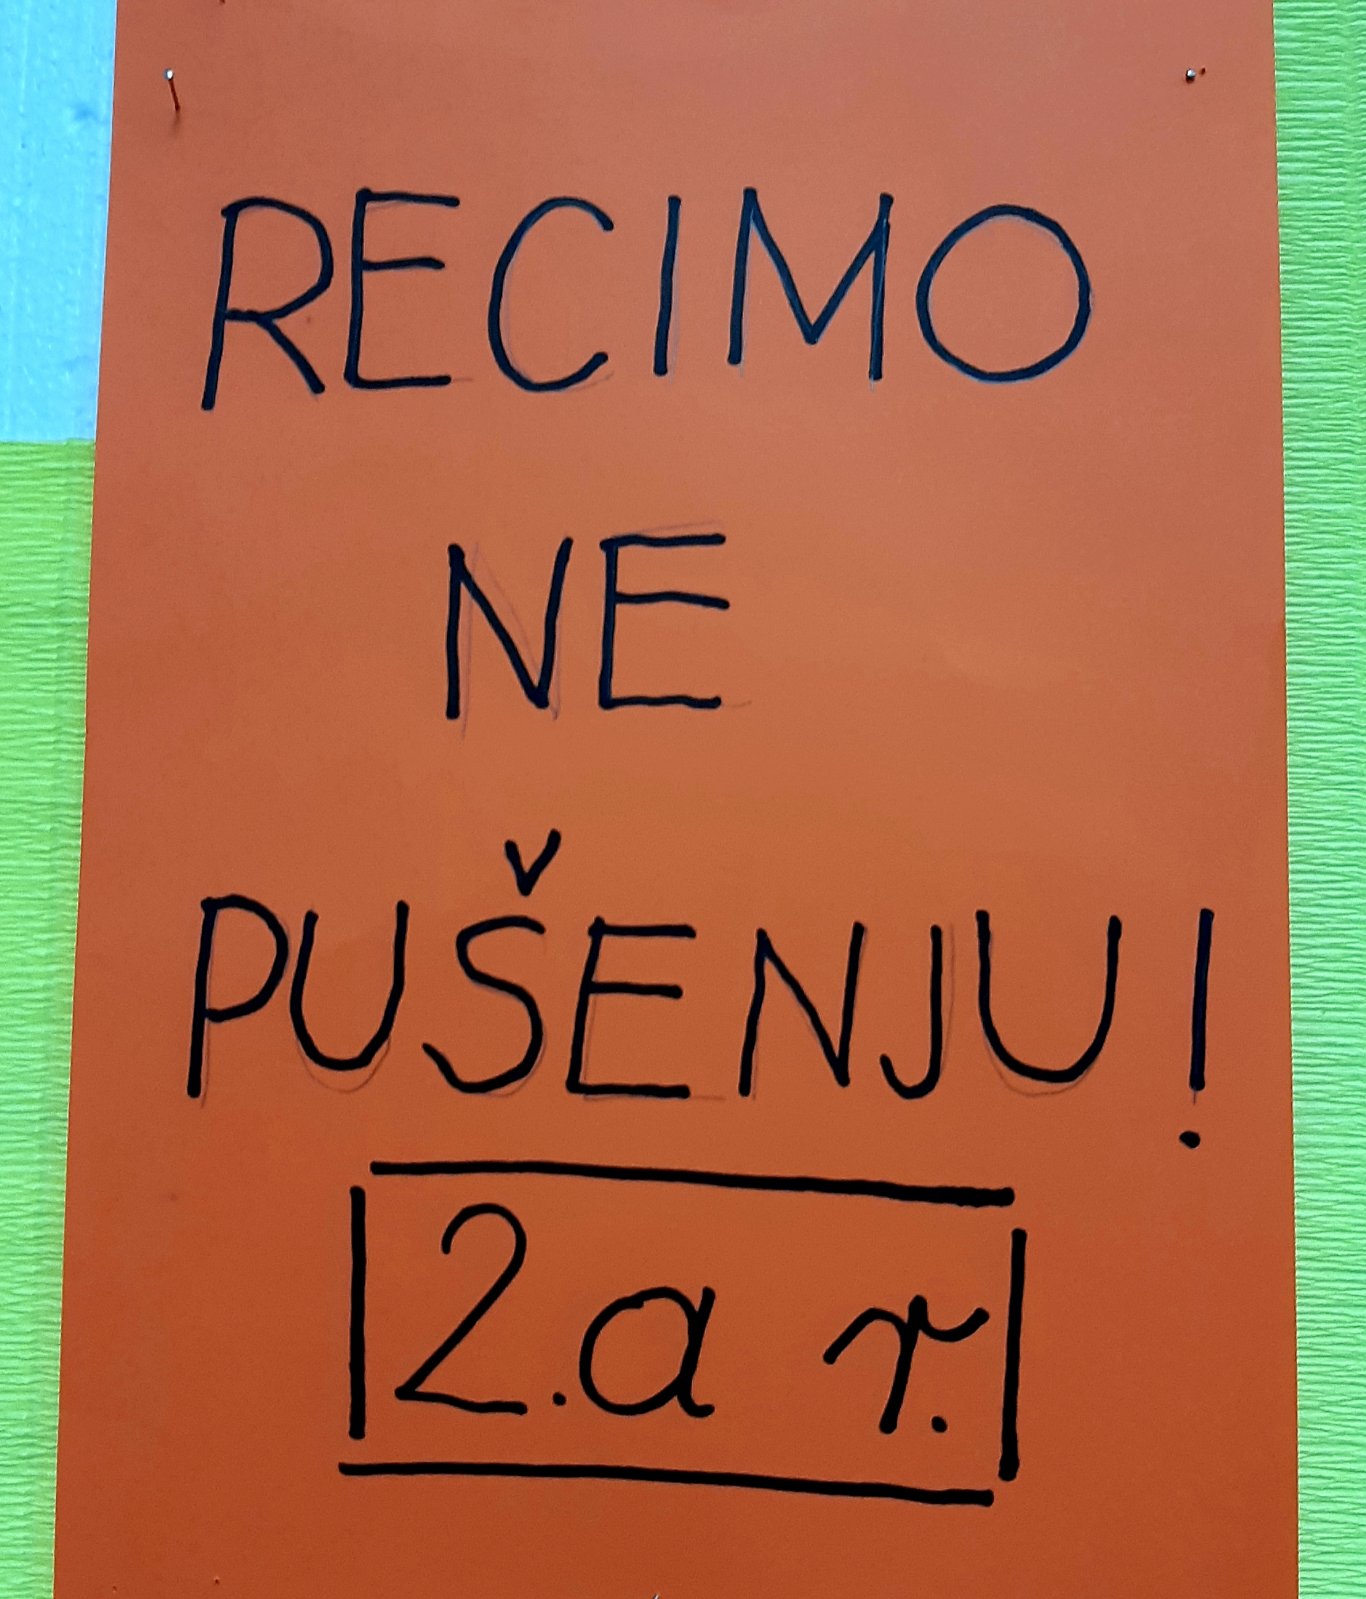 RECIMO
NE
PUŠENJU!
2.a r.